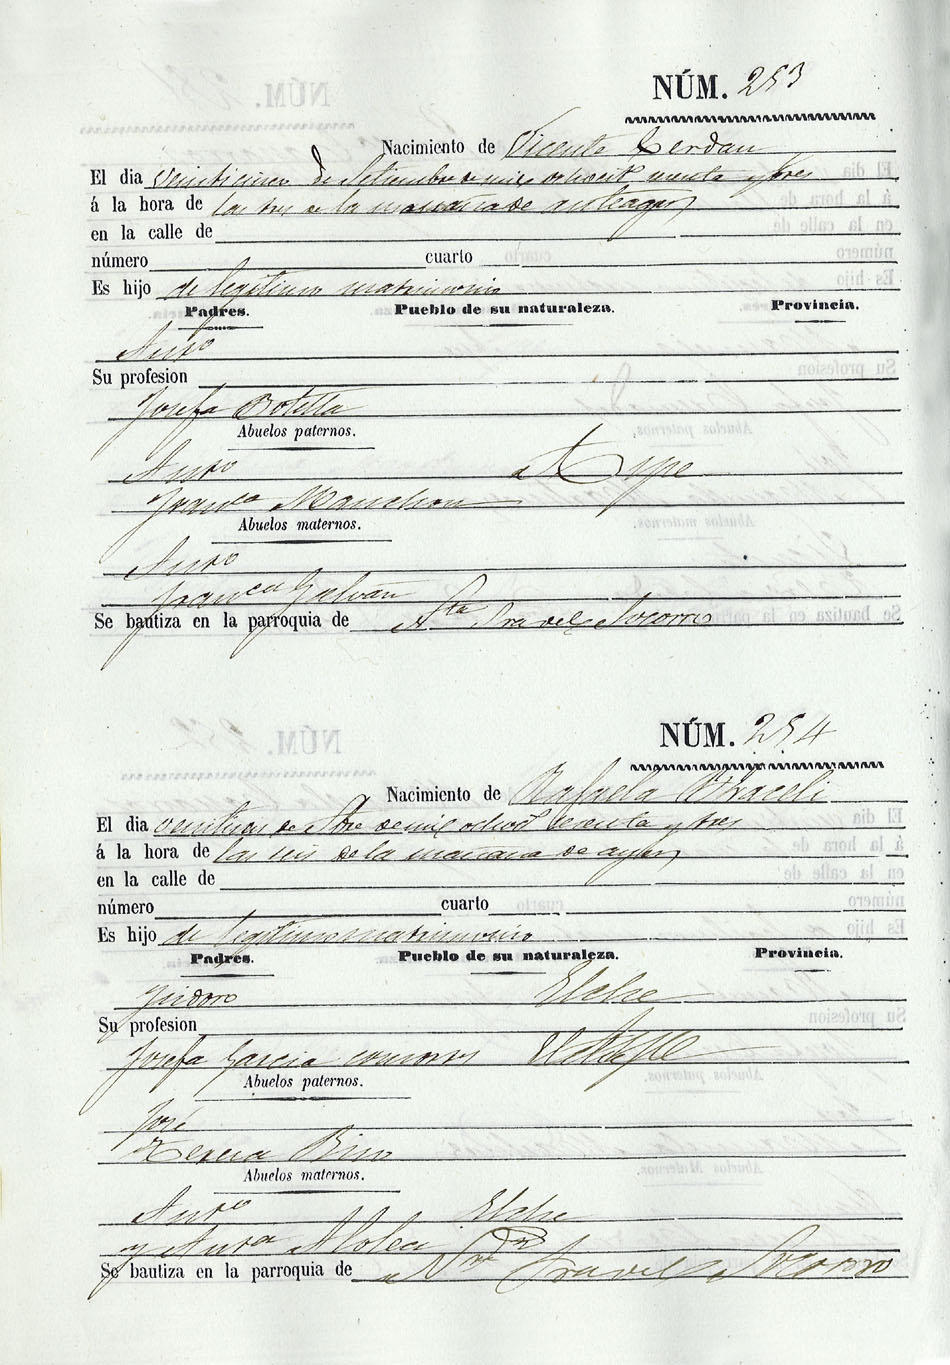 NÚM. 253
Nacimiento de Vicente Cerdan
El dia veinticinco de Setiembre de mil ochoct. senta y tres
á la hora de las tres de la mañana de anteayer
en la calle de
número cuarto
Es hijo de legitimo matrimonio
Padres. Pueblo de su naturaleza. Provincia.
Anto
Su profesion
Josefa Botella
Abuelos paternos.
Anto Aspe
Franca Manchon
Abuelos maternos.
Anto
Franca Galvañ
Se bautiza en la parroquia de Sra del Socorro
NÚM. 254
Nacimiento de Rafaela
El dia de mil ochos sesenta y tres
á la hora de las seis de la mañana de ayer
en la calle de
número cuarto
Es hijo de legitimo matrimonio
Padres. Pueblo de su naturaleza. Provincia.
Ysidoro Elche
Su profesion
Josefa Garcia consortes Aspe
Abuelos paternos.
José
Teresa
Abuelos maternos.
Anto Elche
y Anta
Se bautiza en la parroquia de Sra del Socorro